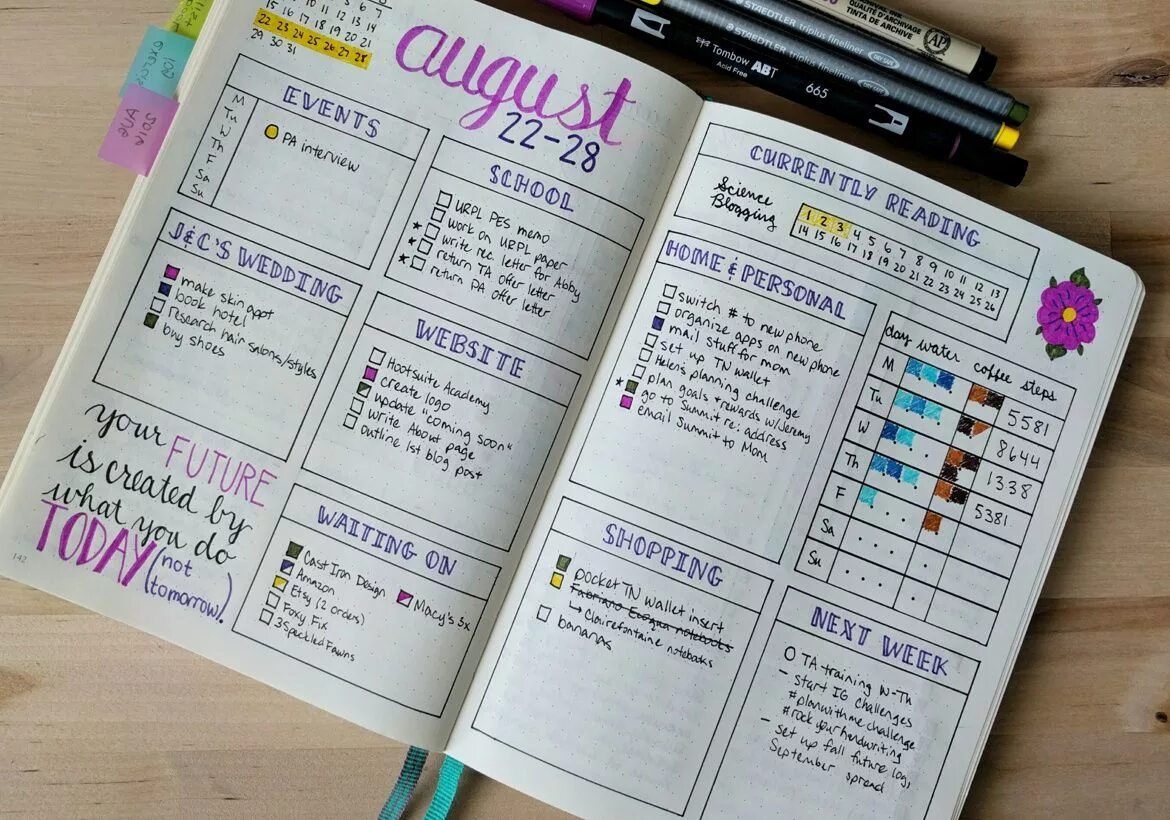 15 16 17 18 19 20 21
22 23 24 25 26 27 28
29 30 31
august
22-28
EVENTS
M
Tu
W
Th
F
Sa
Su
PA interview
SCHOOL
URPL PES memo
work on URPL paper
write rec. letter for Abby
return TA offer letter
return PA offer letter
J&C'S WEDDING
make skin appt
book hotel
research hair salons/styles
buy shoes
WEBSITE
Hootsuite Academy
create logo
update "coming soon"
write About page
outline 1st blog post
your FUTURE
is created by
what you do
TODAY (not
tomorrow).
142
WAITING ON
Cast Iron Design
Amazon
Etsy (2 orders)
Foxy Fix
3 Speckled Fawns
Macy's 5x
CURRENTLY READING
Science
Blogging
1 2 3 4 5 6 7 8 9 10 11 12 13
14 15 16 17 18 19 20 21 22 23 24 25 26
HOME & PERSONAL
switch # to new phone
organize apps on new phone
mail stuff for mom
set up TN wallet
Helen's planning challenge
plan goals + rewards w/Jeremy
go to Summit re: address
email Summit to Mom
day water coffee steps
M 5581
Tu 8644
W 1338
Th 5381
F
Sa
Su
SHOPPING
pocket TN wallet insert
Fabriano Ecoqua notebooks
Clairefontaine notebooks
bananas
NEXT WEEK
TA training W-Th
- start IG challenges
#planwithmechallenge
#rockyourhandwriting
- set up fall future log,
September spread
STAEDTLER triplus fineliner DRY SAFE
STAEDTLER triplus fineliner DRY SAFE
Tombow ABT
Acid Free
665
TINTA DE ARCHIVE
AP